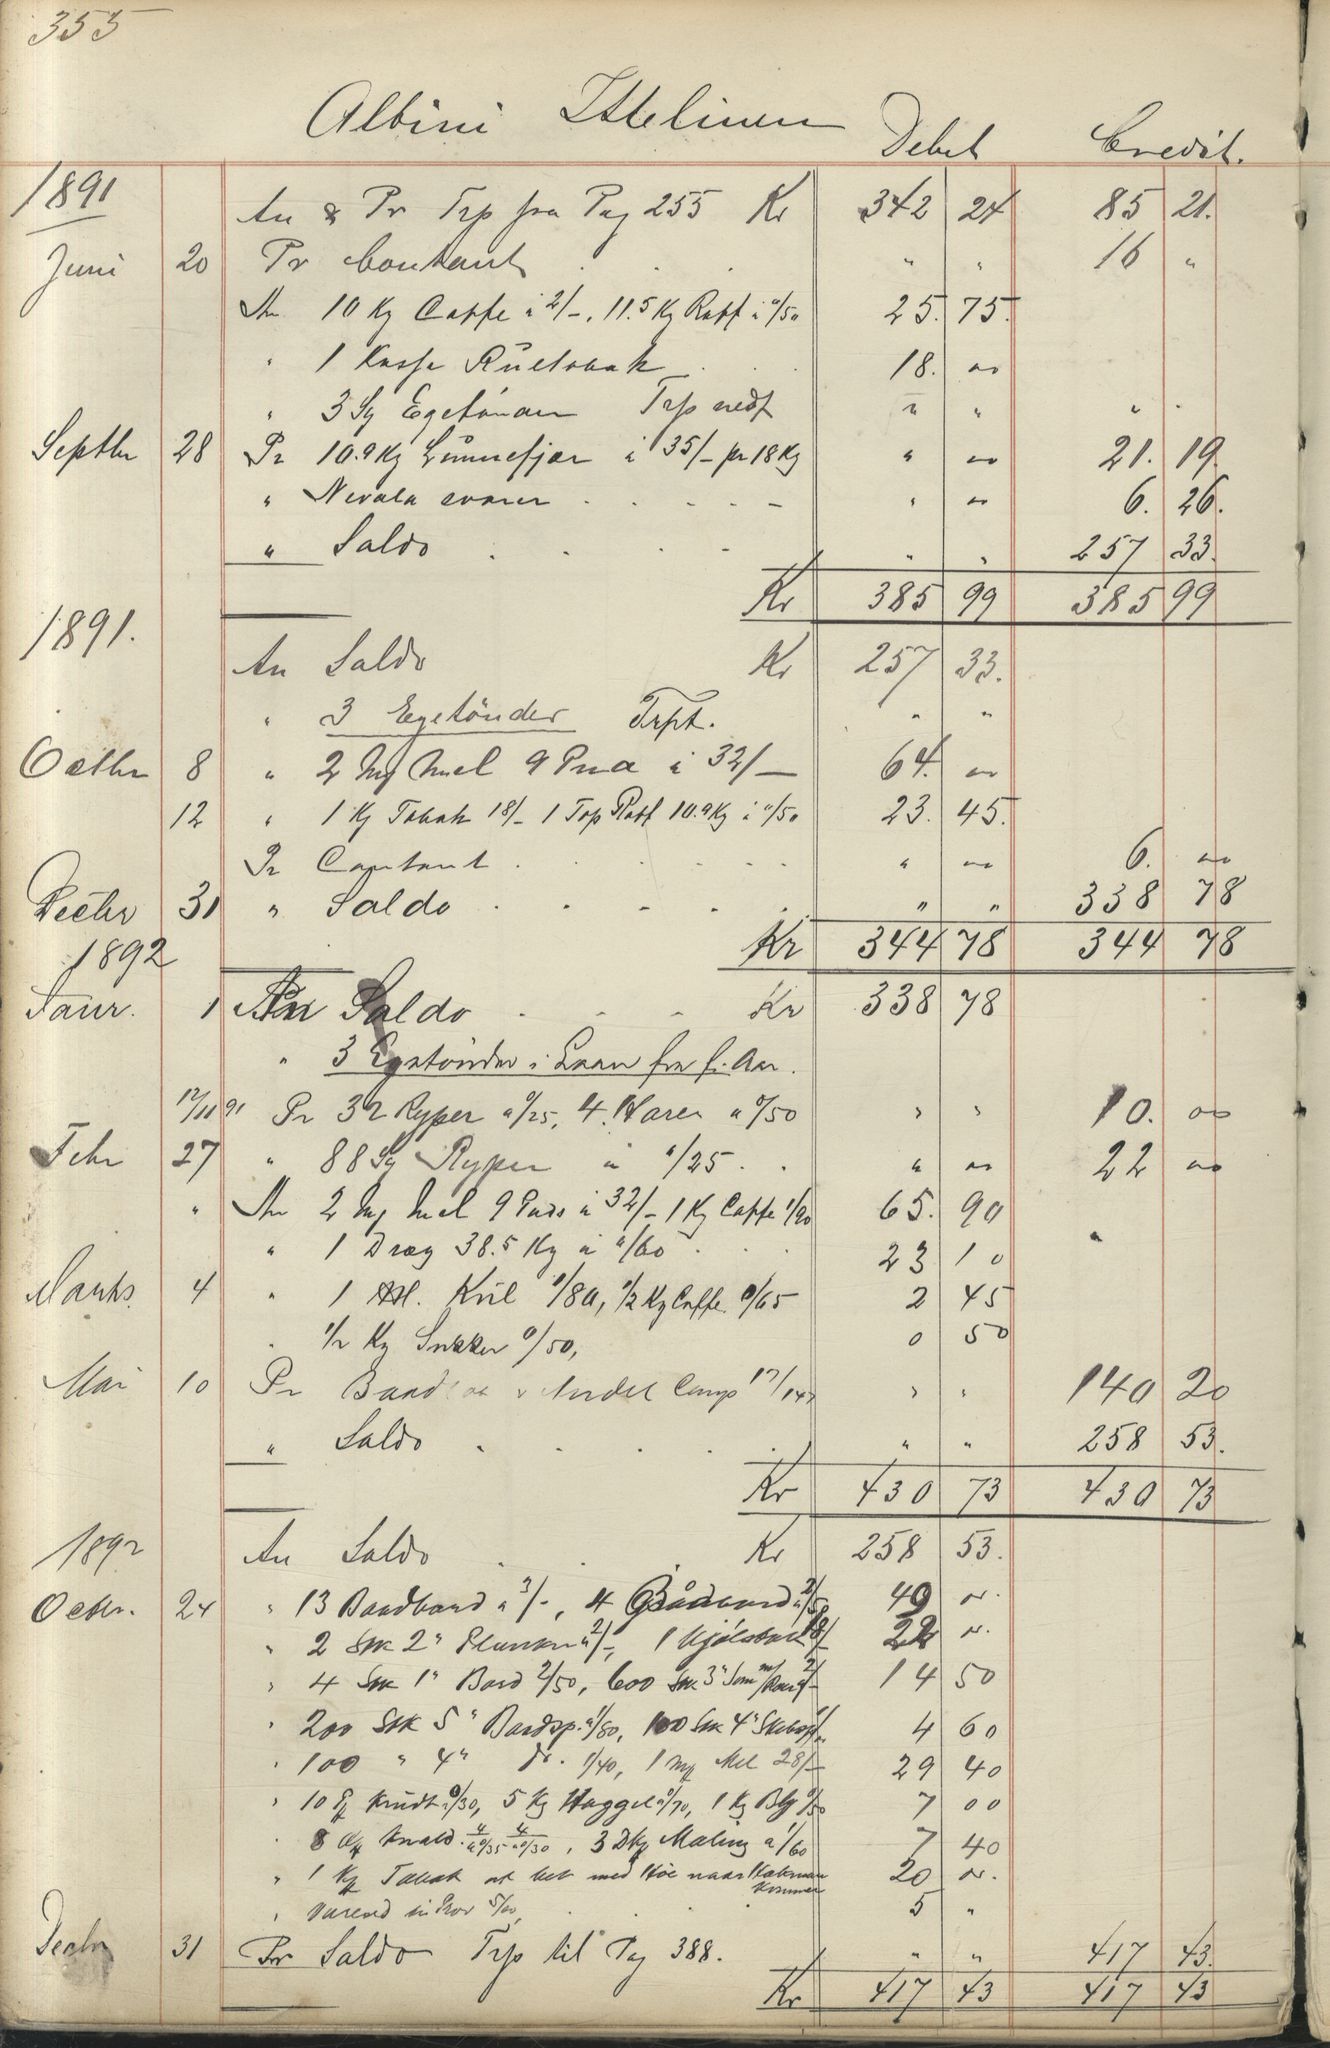 355
Albini Ittelinen Debet Credit.
1891 An & Pr Trp fra Pag 255 Kr 342 24 85 21.
Juni 20 Pr Contant . . . " " 16 "
An 10 Kg Caffe à 2/-, 11.5 Kg Rottf à "/50 25. 75.
" 1 Kasse Rultobak . . . 18. "
" 3 Sg Egetönder Trp nedf " " " "
Septbr 28 Pr 10.9 Kg Lummefjær à 35/- pr 18 Kg " " 21. 19.
" Nevala svarer . . . . . " " 6. 26.
" Saldo . . . . " " 257 33.
Kr 385 99 385 99
1891.
An Saldo Kr 257 33.
" 3 Egetönder Trpt. " "
Octbr 8 " 2 Mg Mel 9 Pud à 32/- 64. "
12 " 1 Kg Tobak 18/- 1 Top Rottf 10.9 Kg à "/50 23. 45.
Pr Contant . . . . . " " 6. "
Decbr 31 " Saldo . . . . . " " 338 78
1892 Kr 344 78 344 78
Janr. 1 An Saldo . . . Kr 338 78
" 3 Egetönder i Laan fra f. Aar.
17/11 91 Pr 32 Ryper a 0/25, 4 Harer a 0/50 " " 10. "
Febr 27 " 88 Sg Ryper à "/25 . . " " 22 "
" An 2 Mg Mel 9 Puds à 32/- 1 Kg Caffe 1/90 65. 90
" 1 Dræg 38.5 Kg à "/60 . . . 23 10
Marts 4 " 1 Kvil 1/80, 1/2 Kg Caffe 0/65 2 45
" 1/2 Kg Sukker 0/50, 0 50
Mai 10 Pr " " 140 20
" Saldo . . . . . " " 258 53.
Kr 430 73 430 73
1892 An Saldo . . . Kr 258 53.
Octbr. 24 " 13 Baadbord a 3/-, 4 49 "
" 2 Stk 2" Planker a 2/-, 1 Kjölstok 18/- 22 "
" 4 Stk 1" Bord 2/50, 600 Stk 3" Söm 14 50
" 200 Stk 5" Baadsp. 1/80, 100 Stk 4" 4 60
" 100 " 4" do. 1/40, 1 Mg Mel 28/- 29 40
" 10 Krudt a 0/30, 5 Kg Haggel a 0/70, 1 Kg Bly 0/50 7 00
" 8 Knald. 4/a 0/35 4/a 0/30, 3 Dkg Maling à 1/60 7 40
" 1 Kg Tobak at bet med Höe naar kommer 20 "
" 5/00, . . . . 5 "
Decbr 31 Pr Saldo Trp til Pag 388. " " 417 43.
Kr 417 43 417 43